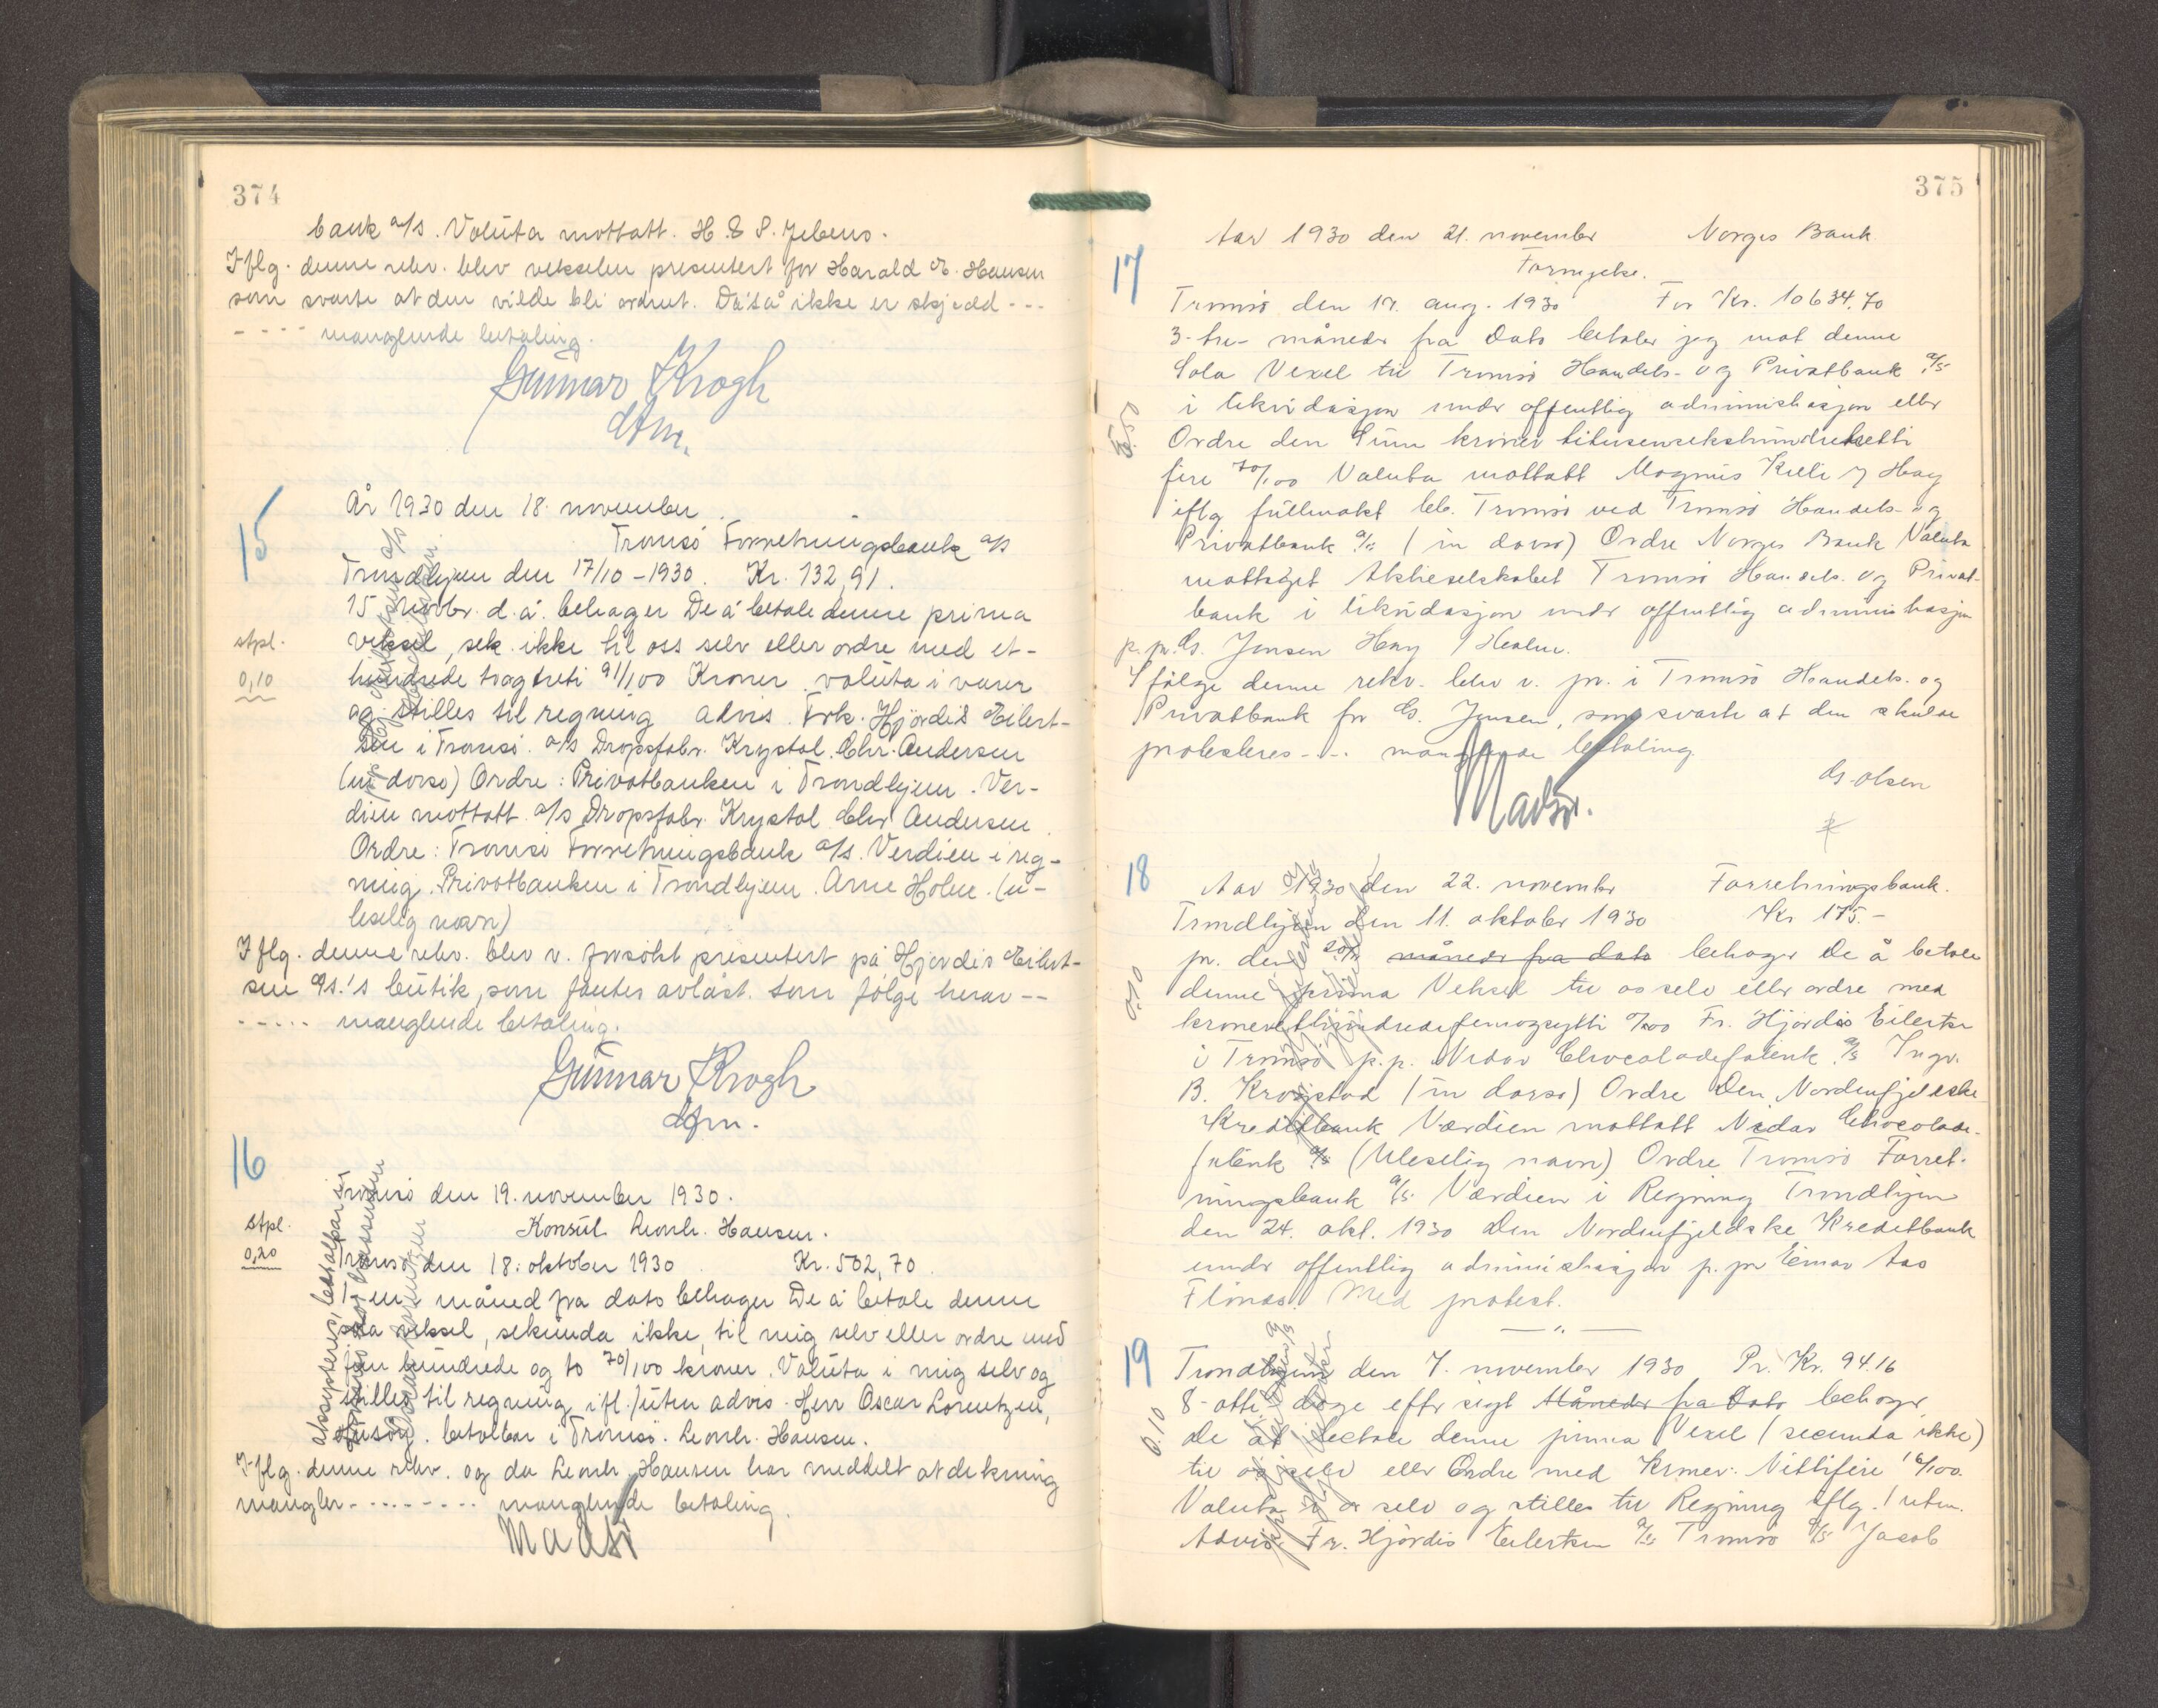 374
bank a/s. Valuta mottatt. H. & S. Jebens.
Iflg. denne rekv. blev vekselen presentert for Harald E. Hansen
som svarte at den vilde bli ordnet. Da så ikke er skjedd ---
---- manglende betaling.
Gunnar Krogh
15
År 1930 den 18. november.
Tromsö Forretningsbank a/s
Trondhjem den 17/10-1930. Kr. 132,91.
15 novbr. d.å. behager De å betale denne prima
stpl.
veksel, sek. ikke til oss selv eller ordre med et-
0,10
hundrede togtreti 91/100 Kroner. valuta i varer
og stilles til regning advis. Frk. Hjördis Eilert-
sen i Tromsö. a/s Dropsfabr. Krystal. Chr. Andersen
(in dorso) Ordre: Privatbanken i Trondhjem. Ver-
dien mottatt a/s Dropsfabr. Krystal Chr Andersen.
Ordre: Tromsö Forretningsbank a/s. Verdien i reg-
ning. Privatbanken i Trondhjem. Arne Holm. (u-
leselig navn)
Iflg. denne rekv. blev v. forsökt presentert på Hjördis Eilert-
sen a/s.'s butik, som fantes avlåst. Som fölge herav --
----- manglende betaling.
Gunnar Krogh
16
Tromsö den 19. november 1930.
stpl.
Konsul Leonh. Hansen.
0,20
Tromsö den 18. oktober 1930. Kr. 502,70.
En måned fra dato behager De å betale denne
veksel, sekunda ikke, til mig selv eller ordre med
fem hundrede og to 70/100 kroner. Valuta i mig selv og
stilles til regning ifl./uten advis. Herr Oscar Lorentzen,
betalbar i Tromsö. Leonh. Hansen.
Iflg. denne rekv. og da Leonh. Hansen har meddelt at dekning
mangler --------- manglende betaling.
375
Aar 1930 den 21. november Norges Bank
17
Fornyelse.
Tromsö den 17. aug. 1930 For Kr. 10634,70
3-tre- måneder fra Dato betaler jeg mot denne
Sola Vexel til Tromsö Handels- og Privatbank a/s
i likvidasjon under offentlig administrasjon eller
Ordre den Sum kroner titusensekshundretretti
fire 70/100 Valuta mottatt Magnus Kille Hay
iflg fullmakt bet. Tromsö ved Tromsö Handels- og
Privatbank a/s (in dorso) Ordre Norges Bank Valuta
mottaget Aktieselskabet Tromsö Handels- og Privat-
bank i likvidasjon under offentlig administrasjon
p.p. G. Jensen Hay / Holm.
I fölge denne rekv. blev v. pr. i Tromsö Handels- og
Privatbank for G. Jensen, som svarte at den skulde
protesteres --- manglende betaling.
G. Olsen
18
Aar 1930 den 22. november Forretningsbank.
Trondhjem den 11. oktober 1930 Kr 175.-
pr. den 20/11 måneder fra dato behager De å betale
0.10
denne prima Veksel til os selv eller ordre med
kroner etthundredefemogsytti 0/100 Fr. Hjördis Eilertsen
i Tromsö p.p. Nidar Chocoladefabrik a/s Ingv.
B. Krogstad (in dorso) Ordre Den Nordenfjeldske
Kreditbank Værdien mottatt Nidar Chocolade-
fabrik a/s (Uleselig navn) Ordre Tromsö Forret-
ningsbank a/s Værdien i Regning Trondhjem
den 24. okt. 1930 Den Nordenfjeldske Kreditbank
under offentlig administrasjon p.p. Einar Aas
Flönes. Med protest.
19
Trondhjem den 7. november 1930 Pr. Kr. 94.16
8-otte- dage efter sigt Måneder fra Dato behager
0.10
De at betale denne prima Vexel (secunda ikke)
til os selv eller Ordre med Kroner: Nittifire 16/100.
Valuta i os selv og stilles til Regning iflg./uten
Advis. Fr. Hjördis Eilertsen a/s Tromsö a/s Jacob